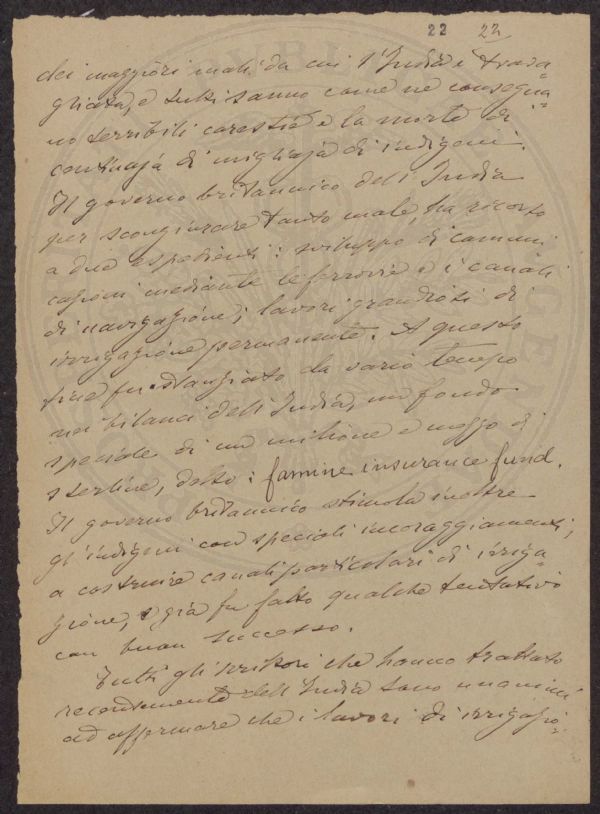 22 22
dei maggiori mali da cui l'India è trava=
gliata, e tutti sanno come ne consegua=
no terribili carestie e la morte di
centinaja di migliaja di indigeni.
Il governo britannico dell'India
per scongiurare tanto male, ha ricorso
a due espedienti: sviluppo di comuni
cazioni mediante le ferrovie e i canali
di navigazione; lavori grandiosi di
irrigazione permanente. A questo
fine fu stanziato da vario tempo
nei bilanci dell'India, un fondo
speciale di un milione e mezzo di
sterline, detto: famine insurance fund.
Il governo britannico stimola inoltre
gl'indigeni con speciali incoraggiamenti,
a costruire canali particolari di irriga=
zione, e già fu fatto qualche tentativo
con buon successo.
Tutti gli scrittori che hanno trattato
recentemente dell'India sono unanimi
ad affermare che i lavori di irrigazio=